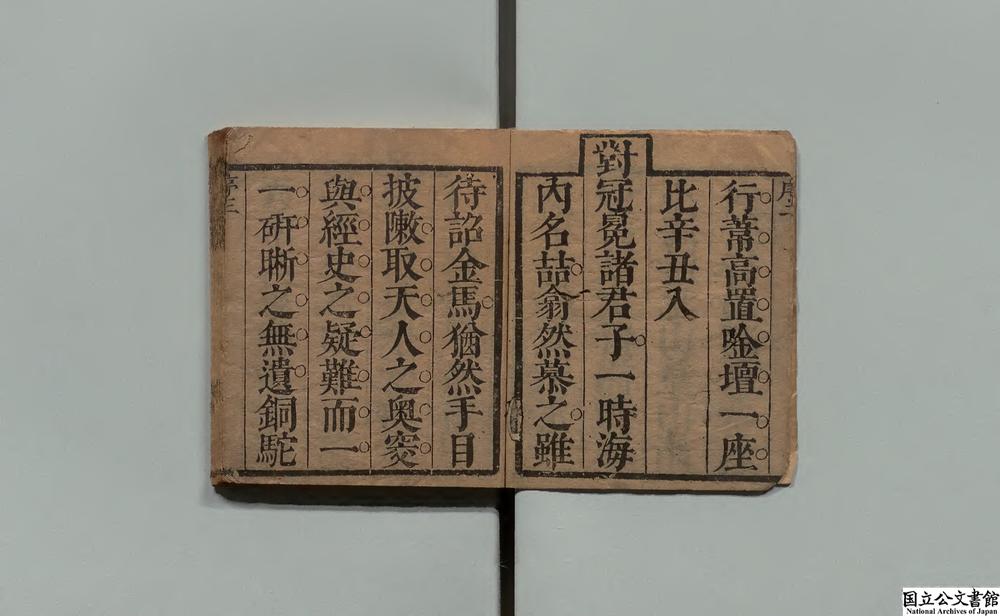 序二
行蒂高置唫壇一座
比辛丑入
對冠冕諸君子一時海
內名喆翕然慕之雖
待詔金馬猶然手目
披漱取天人之奧窔
與經史之疑難而一
一研晣之無遺銅駝
序三
国立公文書館
National Archives of Japan